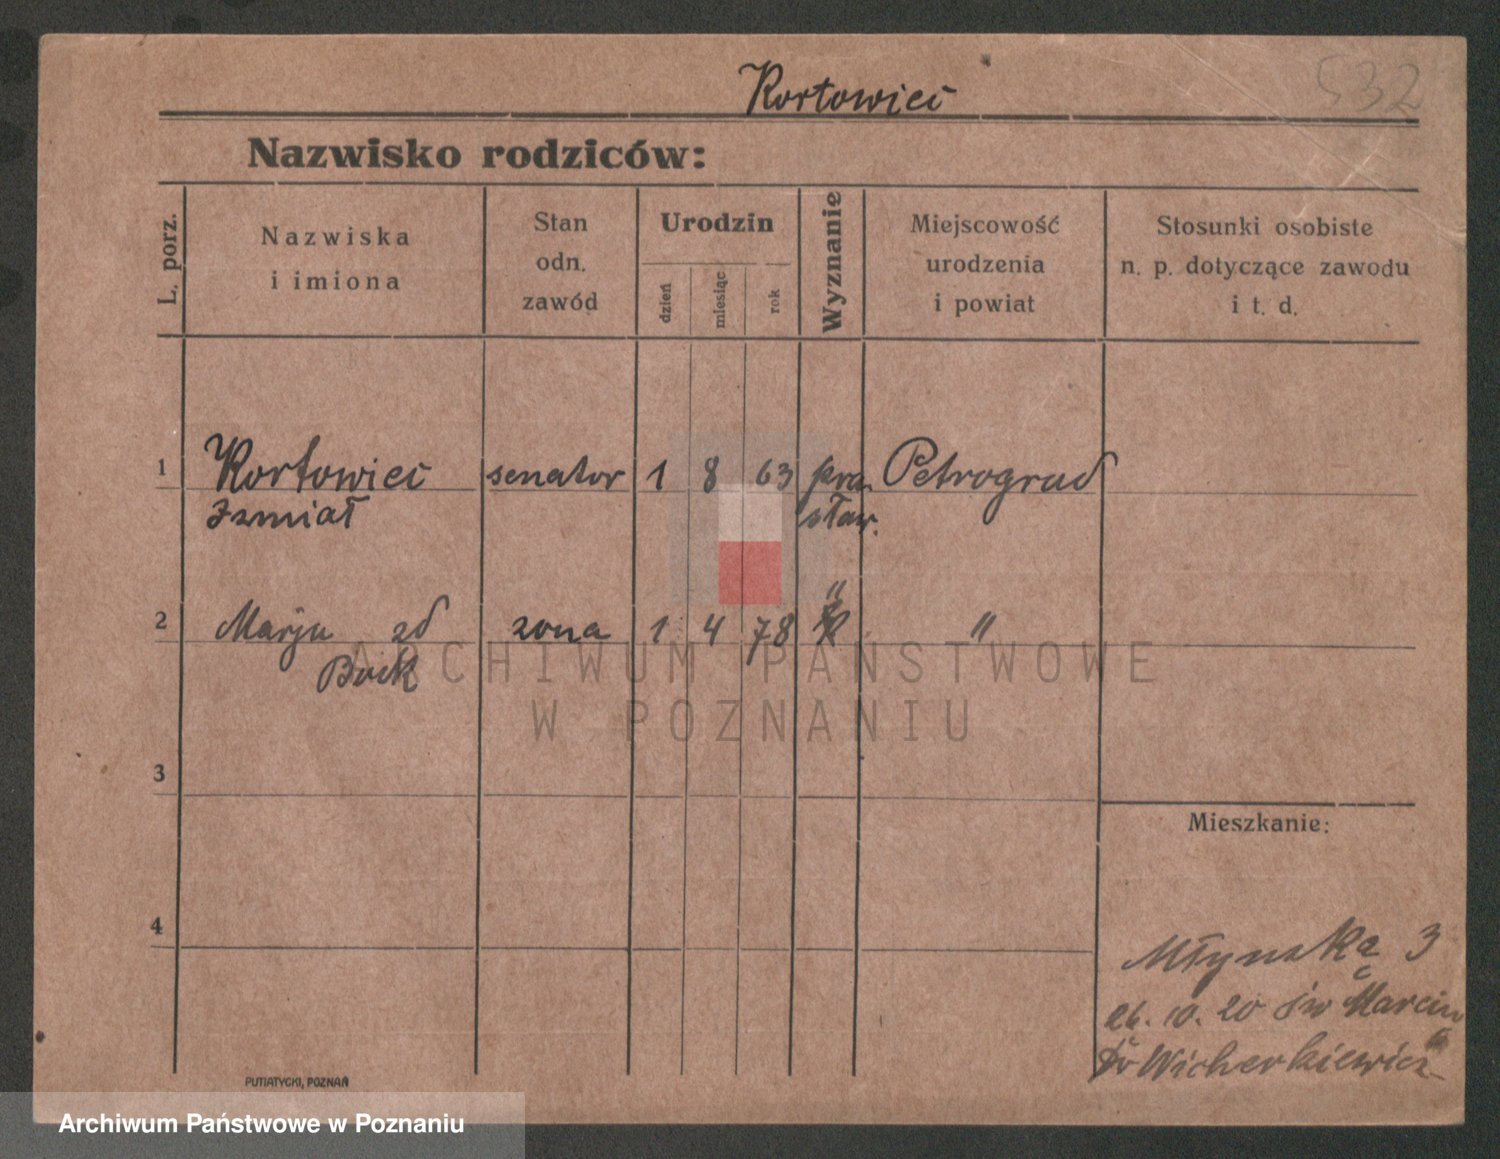 532
Kortowiec
Nazwisko rodziców:
L. porz.
Nazwiska
i imiona
Stan
odn.
zawód
Urodzin
dzień
miesiąc
rok
Wyznanie
Miejscowość
urodzenia
i powiat
Stosunki osobiste
n. p. dotyczące zawodu
i t. d.
1 Kortowiec senator 1 8 63 pra Petrograd
Izmiał sław.
2 Marja zd zona 1 4 78 " "
Bock
ARCHIWUM PAŃSTWOWE
W POZNANIU
3
Mieszkanie:
4
Młynska 3
26. 10. 20 św Marcin
Dr Wicherkiewicz
PUTIATYCKI, POZNAŃ
Archiwum Państwowe w Poznaniu